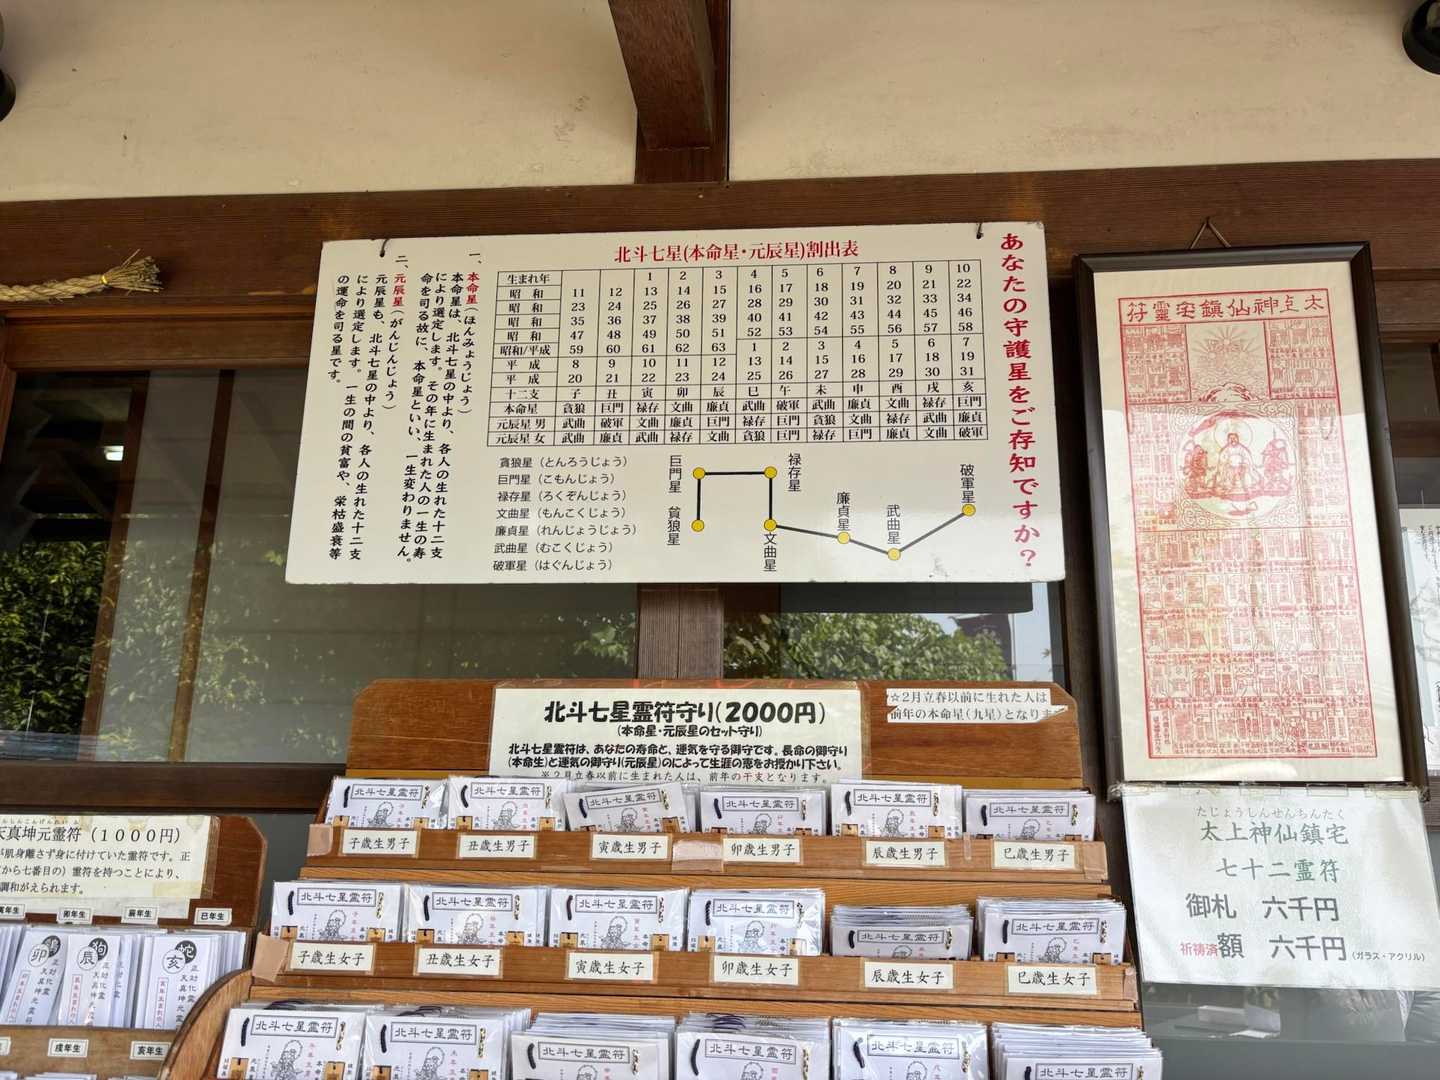 あなたの守護星をご存知ですか?
北斗七星(本命星・元辰星)割出表
生まれ年 1 2 3 4 5 6 7 8 9 10
昭和 11 12 13 14 15 16 17 18 19 20 21 22
昭和 23 24 25 26 27 28 29 30 31 32 33 34
昭和 35 36 37 38 39 40 41 42 43 44 45 46
昭和 47 48 49 50 51 52 53 54 55 56 57 58
昭和/平成 59 60 61 62 63 1 2 3 4 5 6 7
平成 8 9 10 11 12 13 14 15 16 17 18 19
平成 20 21 22 23 24 25 26 27 28 29 30 31
十二支 子 丑 寅 卯 辰 巳 午 未 申 酉 戌 亥
本命星 貪狼 巨門 禄存 文曲 廉貞 武曲 破軍 武曲 廉貞 文曲 禄存 巨門
元辰星 男 武曲 破軍 文曲 廉貞 巨門 禄存 巨門 貪狼 文曲 禄存 武曲 廉貞
元辰星 女 武曲 廉貞 武曲 禄存 文曲 貪狼 巨門 禄存 巨門 廉貞 文曲 破軍
貪狼星(とんろうじょう)
巨門星(こもんじょう)
禄存星(ろくぞんじょう)
文曲星(もんこくじょう)
廉貞星(れんじょうじょう)
武曲星(むこくじょう)
破軍星(はぐんじょう)
巨門星
貪狼星
禄存星
文曲星
廉貞星
武曲星
破軍星
一、本命星(ほんみょうじょう)
本命星は、北斗七星の中より、各人の生れた十二支
により選定します。その年に生まれた人の一生の寿
命を司る故に、本命星といい、一生変わりません。
二、元辰星(がんじんじょう)
元辰星も、北斗七星の中より、各人の生れた十二支
により選定します。一生の間の貧富や、栄枯盛衰等
の運命を司る星です。
太上神仙鎮宅霊符
北斗七星霊符守り(2000円)
(本命星・元辰星のセット守り)
北斗七星霊符は、あなたの寿命と、運気を守る御守です。長命の御守り
(本命生)と運気の御守り(元辰星)のによって生涯の恵をお授かり下さい。
※2月立春以前に生まれた人は、前年の干支となります。
☆2月立春以前に生れた人は
前年の本命星(九星)となりま
北斗七星霊符
北斗七星霊符
北斗七星霊符
北斗七星霊符
北斗七星霊符
北斗七星霊符
子歳生男子
丑歳生男子
寅歳生男子
卯歳生男子
辰歳生男子
巳歳生男子
北斗七星霊符
北斗七星霊符
北斗七星霊符
北斗七星霊符
北斗七星霊符
北斗七星霊符
子歳生女子
丑歳生女子
寅歳生女子
卯歳生女子
辰歳生女子
巳歳生女子
北斗七星霊符
北斗七星霊符
北斗七星霊符
北斗七星霊符
北斗七星霊符
北斗七星霊符
天真坤元霊符(1000円)
が肌身離さず身に付けていた霊符です。正
から七番目の)霊符を持つことにより、
調和がえられます。
寅年生
卯年生
辰年生
巳年生
戌年生
亥年生
たじょうしんせんちんたく
太上神仙鎮宅
七十二霊符
御札 六千円
祈祷済額 六千円(ガラス・アクリル)